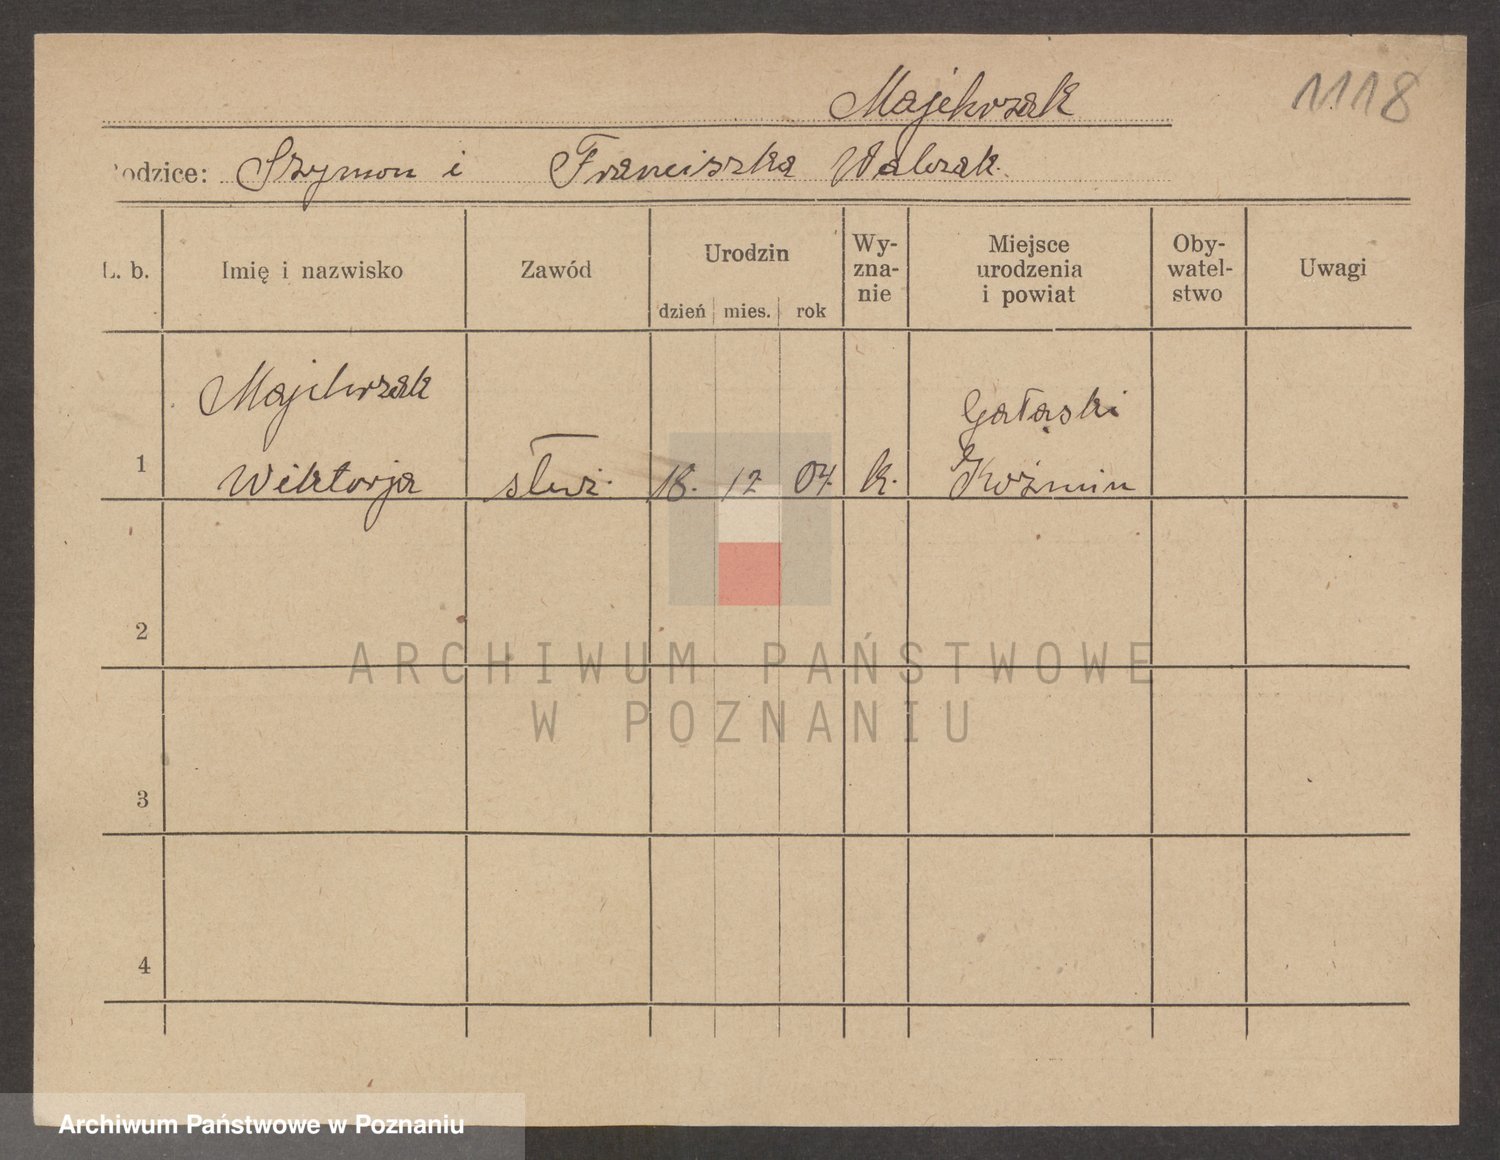 Majchrzak
1118
Rodzice: Szymon i Franciszka Walczak
L. b.
Imię i nazwisko
Zawód
Urodzin
dzień mies. rok
Wy-
zna-
nie
Miejsce
urodzenia
i powiat
Oby-
watel-
stwo
Uwagi
Majchrzak
Gałąski
1 Wiktorja służ. 18. 12 04. k. Koźmin
2
3
4
ARCHIWUM PAŃSTWOWE
W POZNANIU
Archiwum Państwowe w Poznaniu